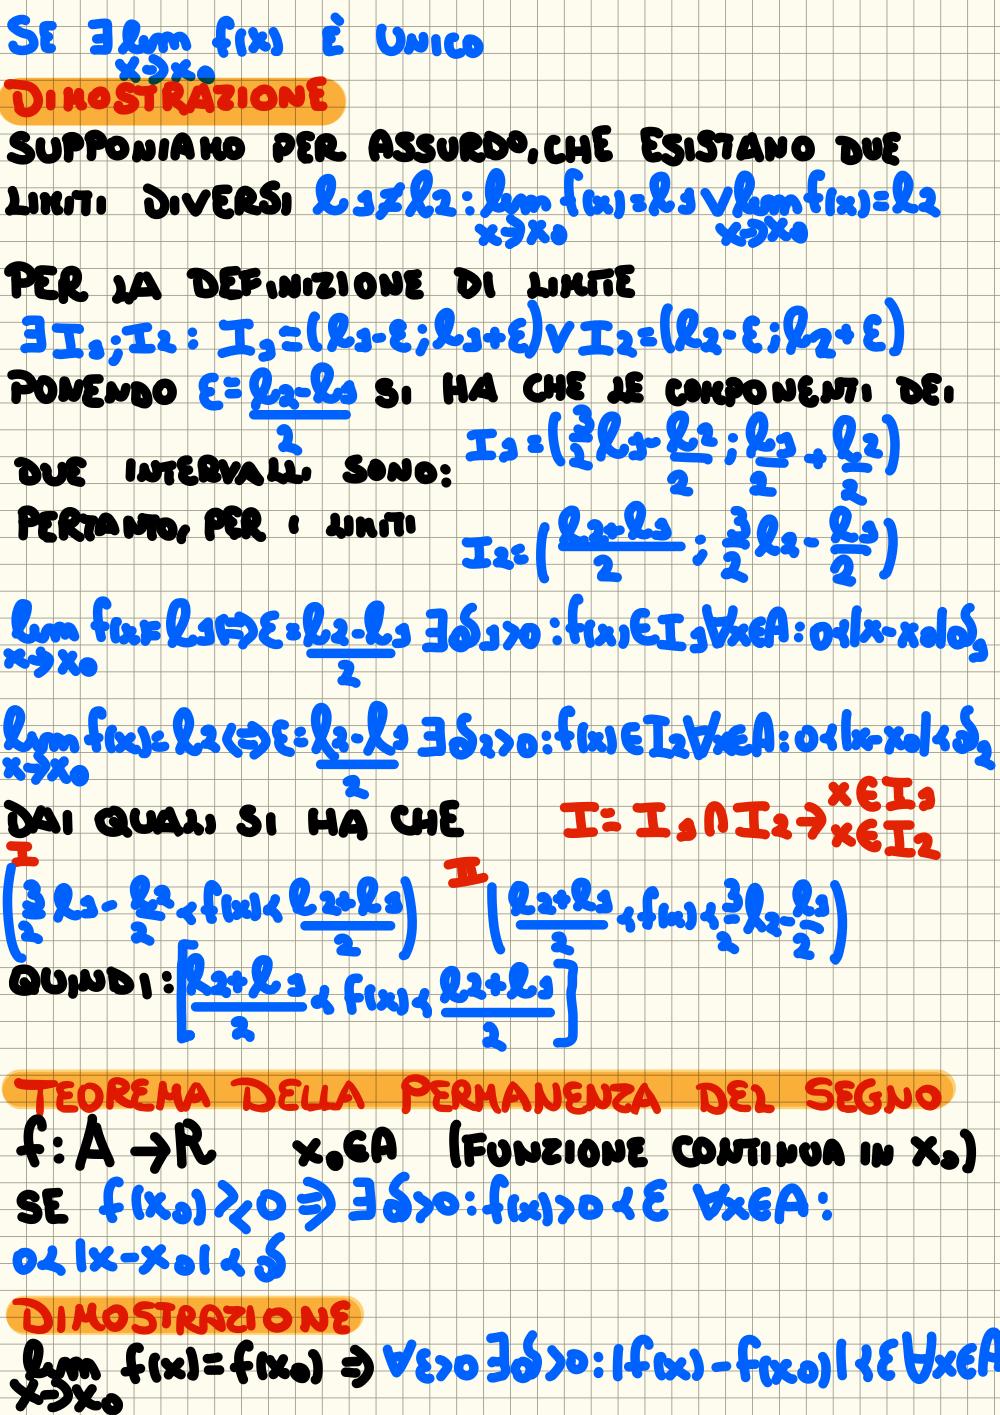 SE ∃ lim f(x) È UNICO
x→x₀
DIMOSTRAZIONE
SUPPONIAMO PER ASSURDO, CHE ESISTANO DUE
LIMITI DIVERSI l₁≠l₂: lim f(x)=l₁ ∨ lim f(x)=l₂
x→x₀ x→x₀
PER LA DEFINIZIONE DI LIMITE
∃ I₁; I₂: I₁=(l₁-ε; l₁+ε) ∨ I₂=(l₂-ε; l₂+ε)
PONENDO ε=(l₂-l₁)/2 SI HA CHE LE COMPONENTI DEI
DUE INTERVALLI SONO: I₁=(3/2 l₁ - l₂/2; l₁/2 + l₂/2)
PERTANTO, PER I LIMITI I₂=((l₂+l₁)/2; 3/2 l₂ - l₁/2)
lim f(x)=l₁ ⇔ ε=(l₂-l₁)/2 ∃δ₁>0: f(x)∈I₁ ∀x∈A: 0<|x-x₀|<δ₁
x→x₀
lim f(x)=l₂ ⇔ ε=(l₂-l₁)/2 ∃δ₂>0: f(x)∈I₂ ∀x∈A: 0<|x-x₀|<δ₂
x→x₀
DAI QUALI SI HA CHE I = I₁∩I₂ → x∈I₁
x∈I₂
I II
(3/2 l₁ - l₂/2 < f(x) < (l₂+l₁)/2) ((l₂+l₁)/2 < f(x) < 3/2 l₂ - l₁/2)
QUINDI: [(l₂+l₁)/2 < f(x) < (l₂+l₁)/2]
TEOREMA DELLA PERMANENZA DEL SEGNO
f: A→R x₀∈A (FUNZIONE CONTINUA IN x₀)
SE f(x₀)≷0 ⇒ ∃δ>0: f(x)>0 <ε ∀x∈A:
0<|x-x₀|<δ
DIMOSTRAZIONE
lim f(x)=f(x₀) ⇒ ∀ε>0 ∃δ>0: |f(x)-f(x₀)|<ε ∀x∈A
x→x₀